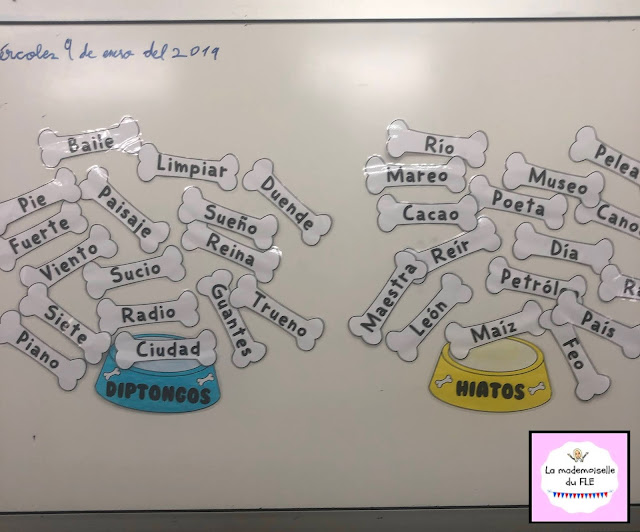 ércoles 9 de enero del 2019
Baile
Limpiar
Pie
Paisaje
Duende
Fuerte
Sueño
Reina
Viento
Sucio
Siete
Radio
Guantes
Trueno
Piano
Ciudad
DIPTONGOS
Río
Mareo
Museo
Pelea
Cacao
Poeta
Cano
Reír
Día
Maestra
León
Petról
Maíz
País
Feo
HIATOS
La mademoiselle
du FLE